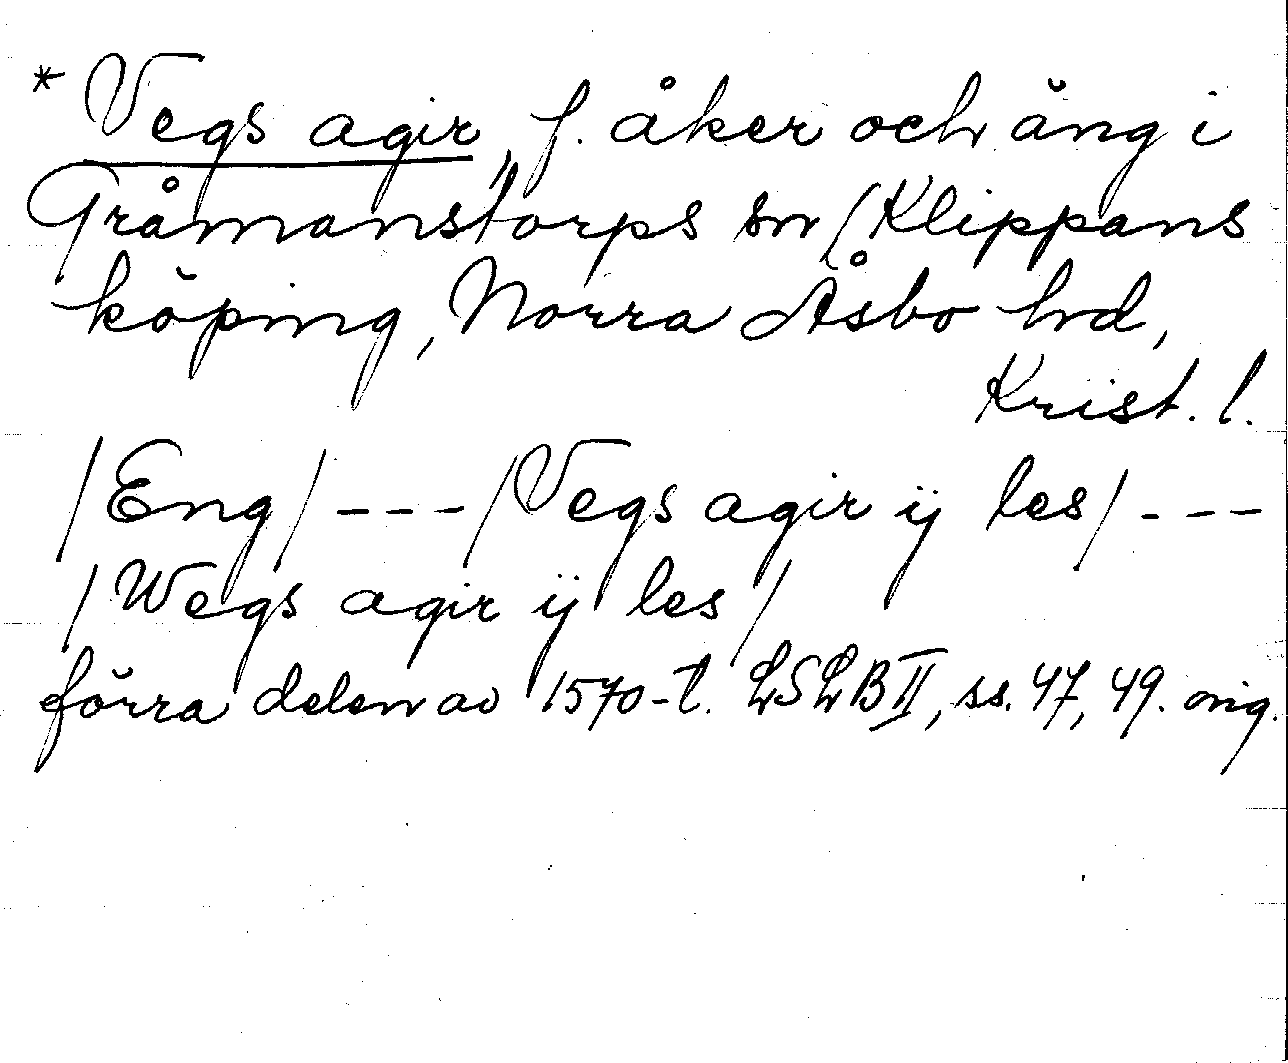 * Vegs agir, f. åker och äng i
Gråmanstorps sn (Klippans
köping, Norra Åsbo hd,
Krist. l.
/Eng/ --- /Vegs agir ij les/ ---
/Wegs agir ij les/
förra delen av 1570-t. LSLB II, ss. 47, 49. orig.